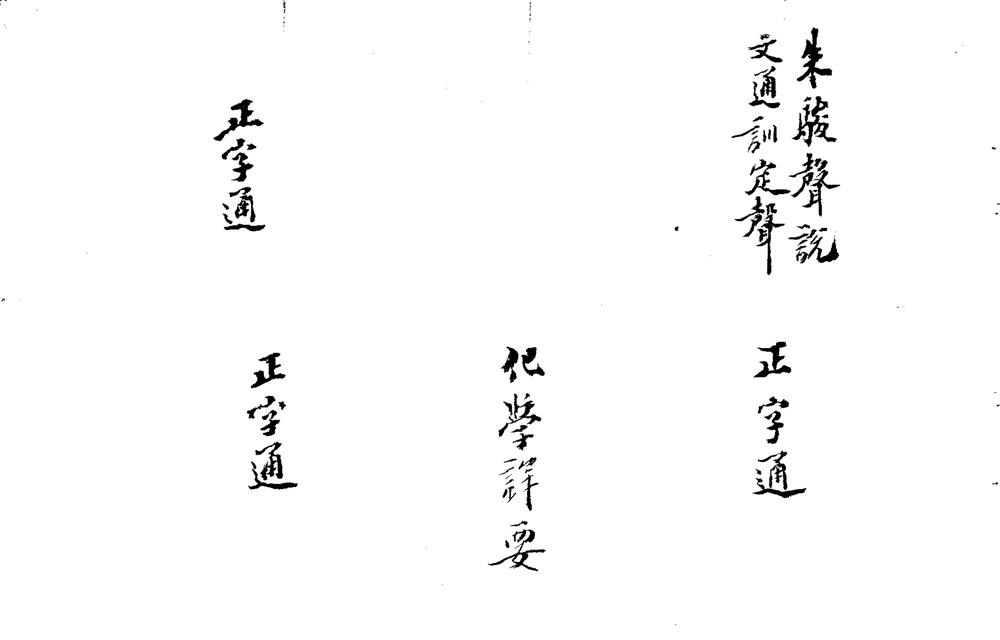 朱駿聲説
文通訓定聲
正字通
正字通
化學詳要
正字通